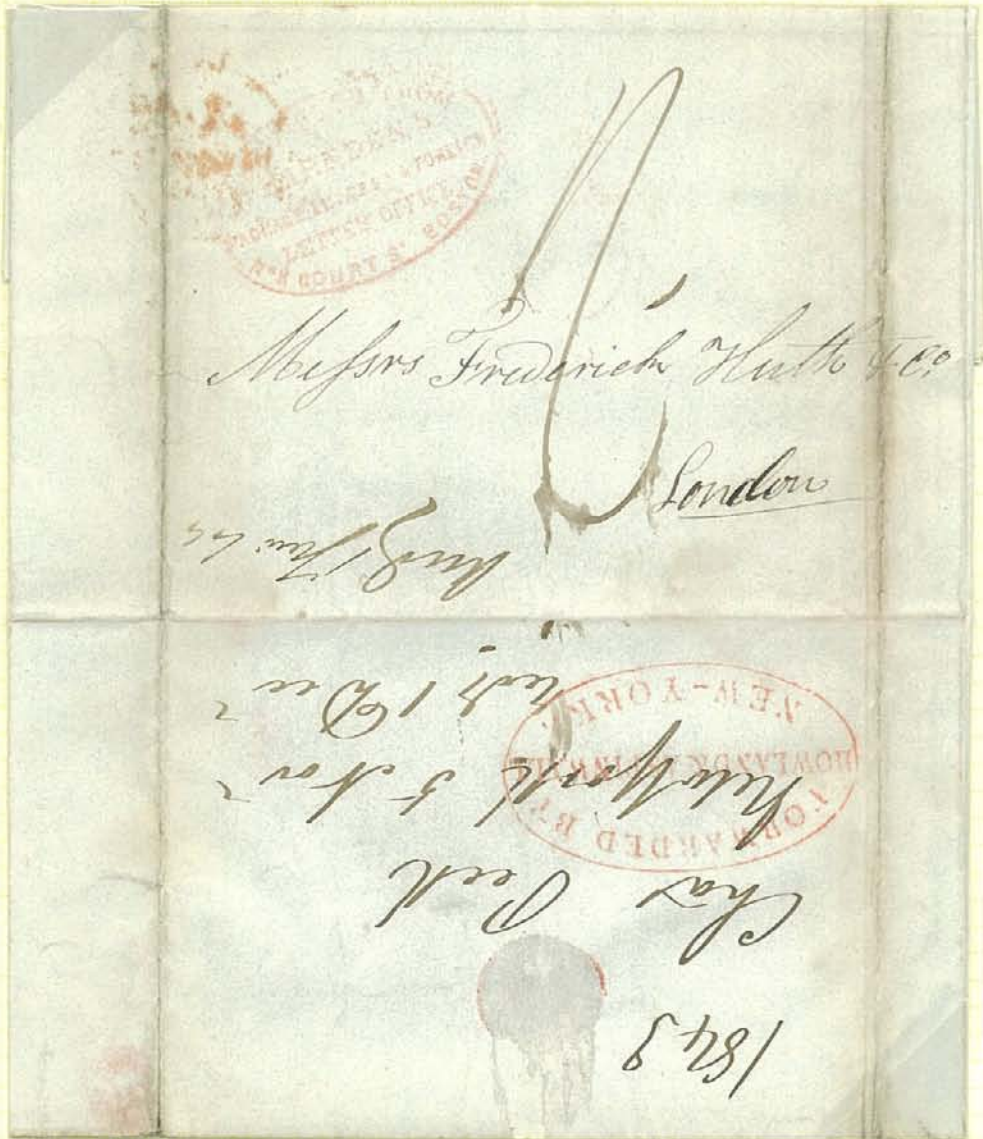 HARNDEN'S
PACKAGE EXPRESS & FOREIGN
LETTER OFFICE
No 8 COURT St BOSTON
Messrs Frederick Huth & Co
London
1843
Chas Peck
New York 5 Nov
1 Dec
FORWARDED BY
HOWLAND & ASPINWALL
NEW-YORK